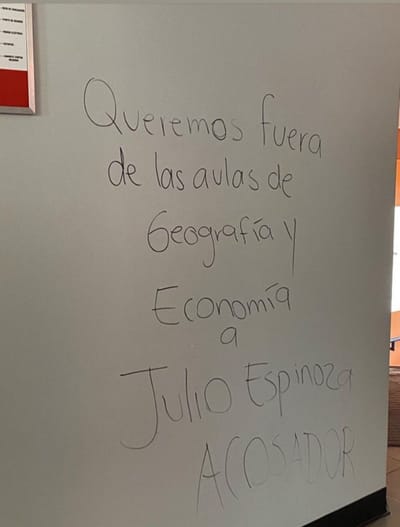 Queremos fuera
de las aulas de
Geografía y
Economía
a
Julio Espinoza
ACOSADOR